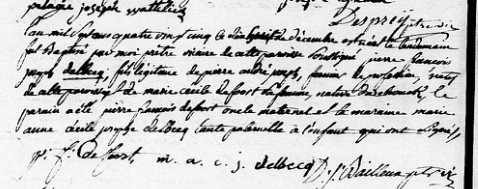 pelagie joseph Wattelier
Desprez ptre vic
au mil sept cent quatre vingt cinq le dix sept de décembre est né le lendemain
fut Baptisé par moi prêtre vicaire de cette paroisse soussigné pierre françois
joseph delbecq, fils légitime de pierre andré joseph, fermier de profession, natif
de cette paroisse et de marie cécile defort sa femme, native le
parrain a été pierre francois defort oncle maternel et la marraine marie
anne cécile joseph delbecq tante paternelle à l'enfant qui ont signés
p. f. Defort m. a. c. j. delbecq D. J. Bailleux ptre vic